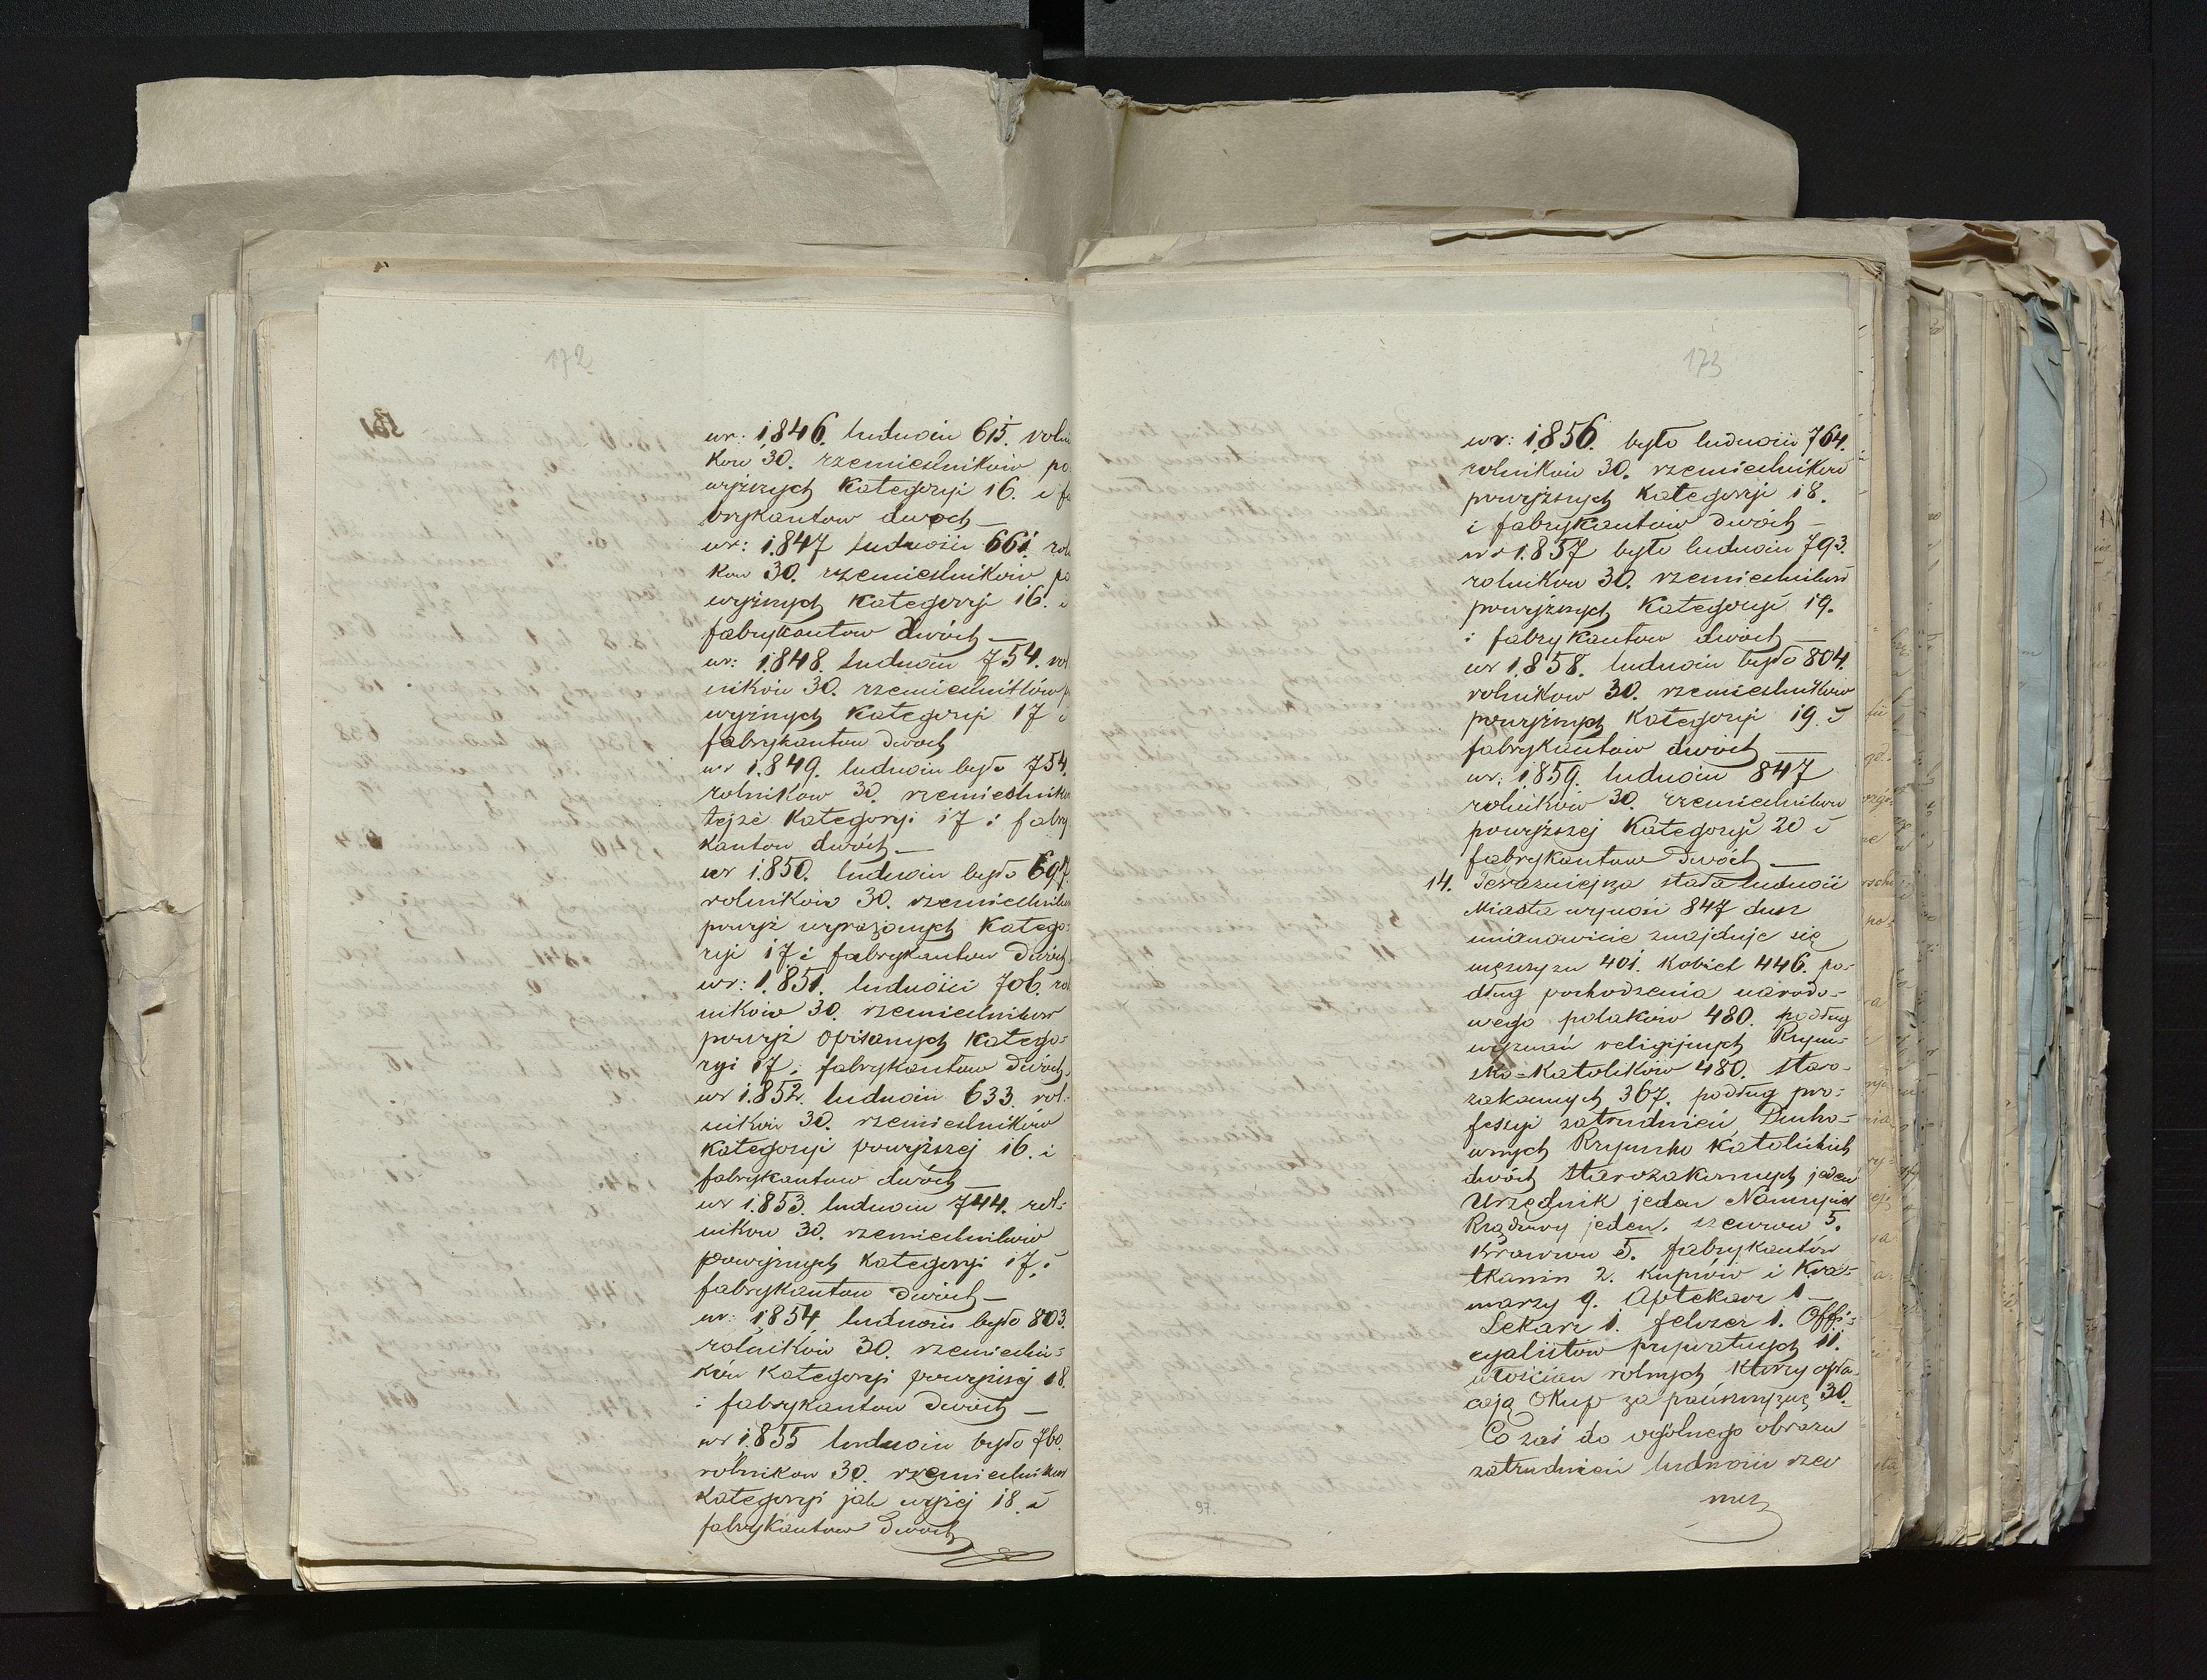 172
wr: 1846. ludności 615. rolni
ków 30. rzemieślników po
wyższych kategoryi 16. i fa
brykantow dwóch —
wr: 1847 ludności 661. rol
kow 30. rzemieślników po
wyższych kategoryi 16. i
fabrykantow dwóch —
wr: 1848. ludności 754. rol
ników 30. rzemieślników p
wyższych kategoryi 17 i
fabrykantow dwoch
wr 1849. ludności było 754.
rolnikow 30. rzemieślników
tejże kategoryi 17 i fabry
kantow dwóch —
wr 1850. ludności było 697.
rolników 30. rzemieślników
powyż wyrażonych katego-
ryi 17 i fabrykantow dwóch
wr: 1851. ludności 706. rol
ników 30. rzemieślników
powyż opisanych katego-
ryi 17. i fabrykantow dwóch.
wr 1852. ludności 633. rol-
ników 30. rzemieślników
kategoryi powyższej 16. i
fabrykantow dwóch —
wr 1853. ludności 744. rol-
ników 30. rzemieślników
powyższych kategoryi 17. i
fabrykantow dwóch —
wr: 1854 ludności było 803.
rolników 30. rzemieślni-
ków kategoryi powyższej 18.
i fabrykantow dwóch —
wr 1855 ludności było 760.
rolnikow 30. rzemieślnikow
kategoryi jak wyżej 18. i
fabrykantow dwoch
173
wr: 1856. było ludności 764.
rolników 30. rzemieślników
powyższych kategoryi 18.
i fabrykantów dwóch —
wr 1857 było ludności 793.
rolników 30. rzemieślników
powyższych kategoryi 19.
i fabrykantow dwóch —
wr 1858. ludności było 804.
rolnikow 30. rzemieślników
powyższych kategoryi 19. i
fabrykantów dwóch —
wr: 1859. ludności 847
rolników 30. rzemieślników
powyższej kategoryi 20 i
fabrykantow dwóch —
14. Teraźniejsza stała ludność
Miasta wynosi 847 dusz
mianowicie znajduje się
męszyzn 401. kobiet 446. po-
dług pochodzenia narodo-
wego polaków 480. podług
wyznań religijnych Rzym-
sko-katolików 480. staro-
zakonnych 367. podług pro-
fessyi zatrudnień, Ducho-
wnych Rzymsko katolickich
dwóch starozakonnych jeden
Urzędnik jeden Nauczyciel
Rządowy jeden. szewców 5.
krawców 5. fabrykantów
tkanin 2. kupców i kra-
marzy 9. Aptekarz 1 —
Lekarz 1. felczer 1. Offi-
cyalistów prywatnych 11.
włościan rolnych którzy opła-
cają Okup za pańszczyznę 30.
Co zaś do ogólnego obrazu
zatrudnień ludności rze
97.